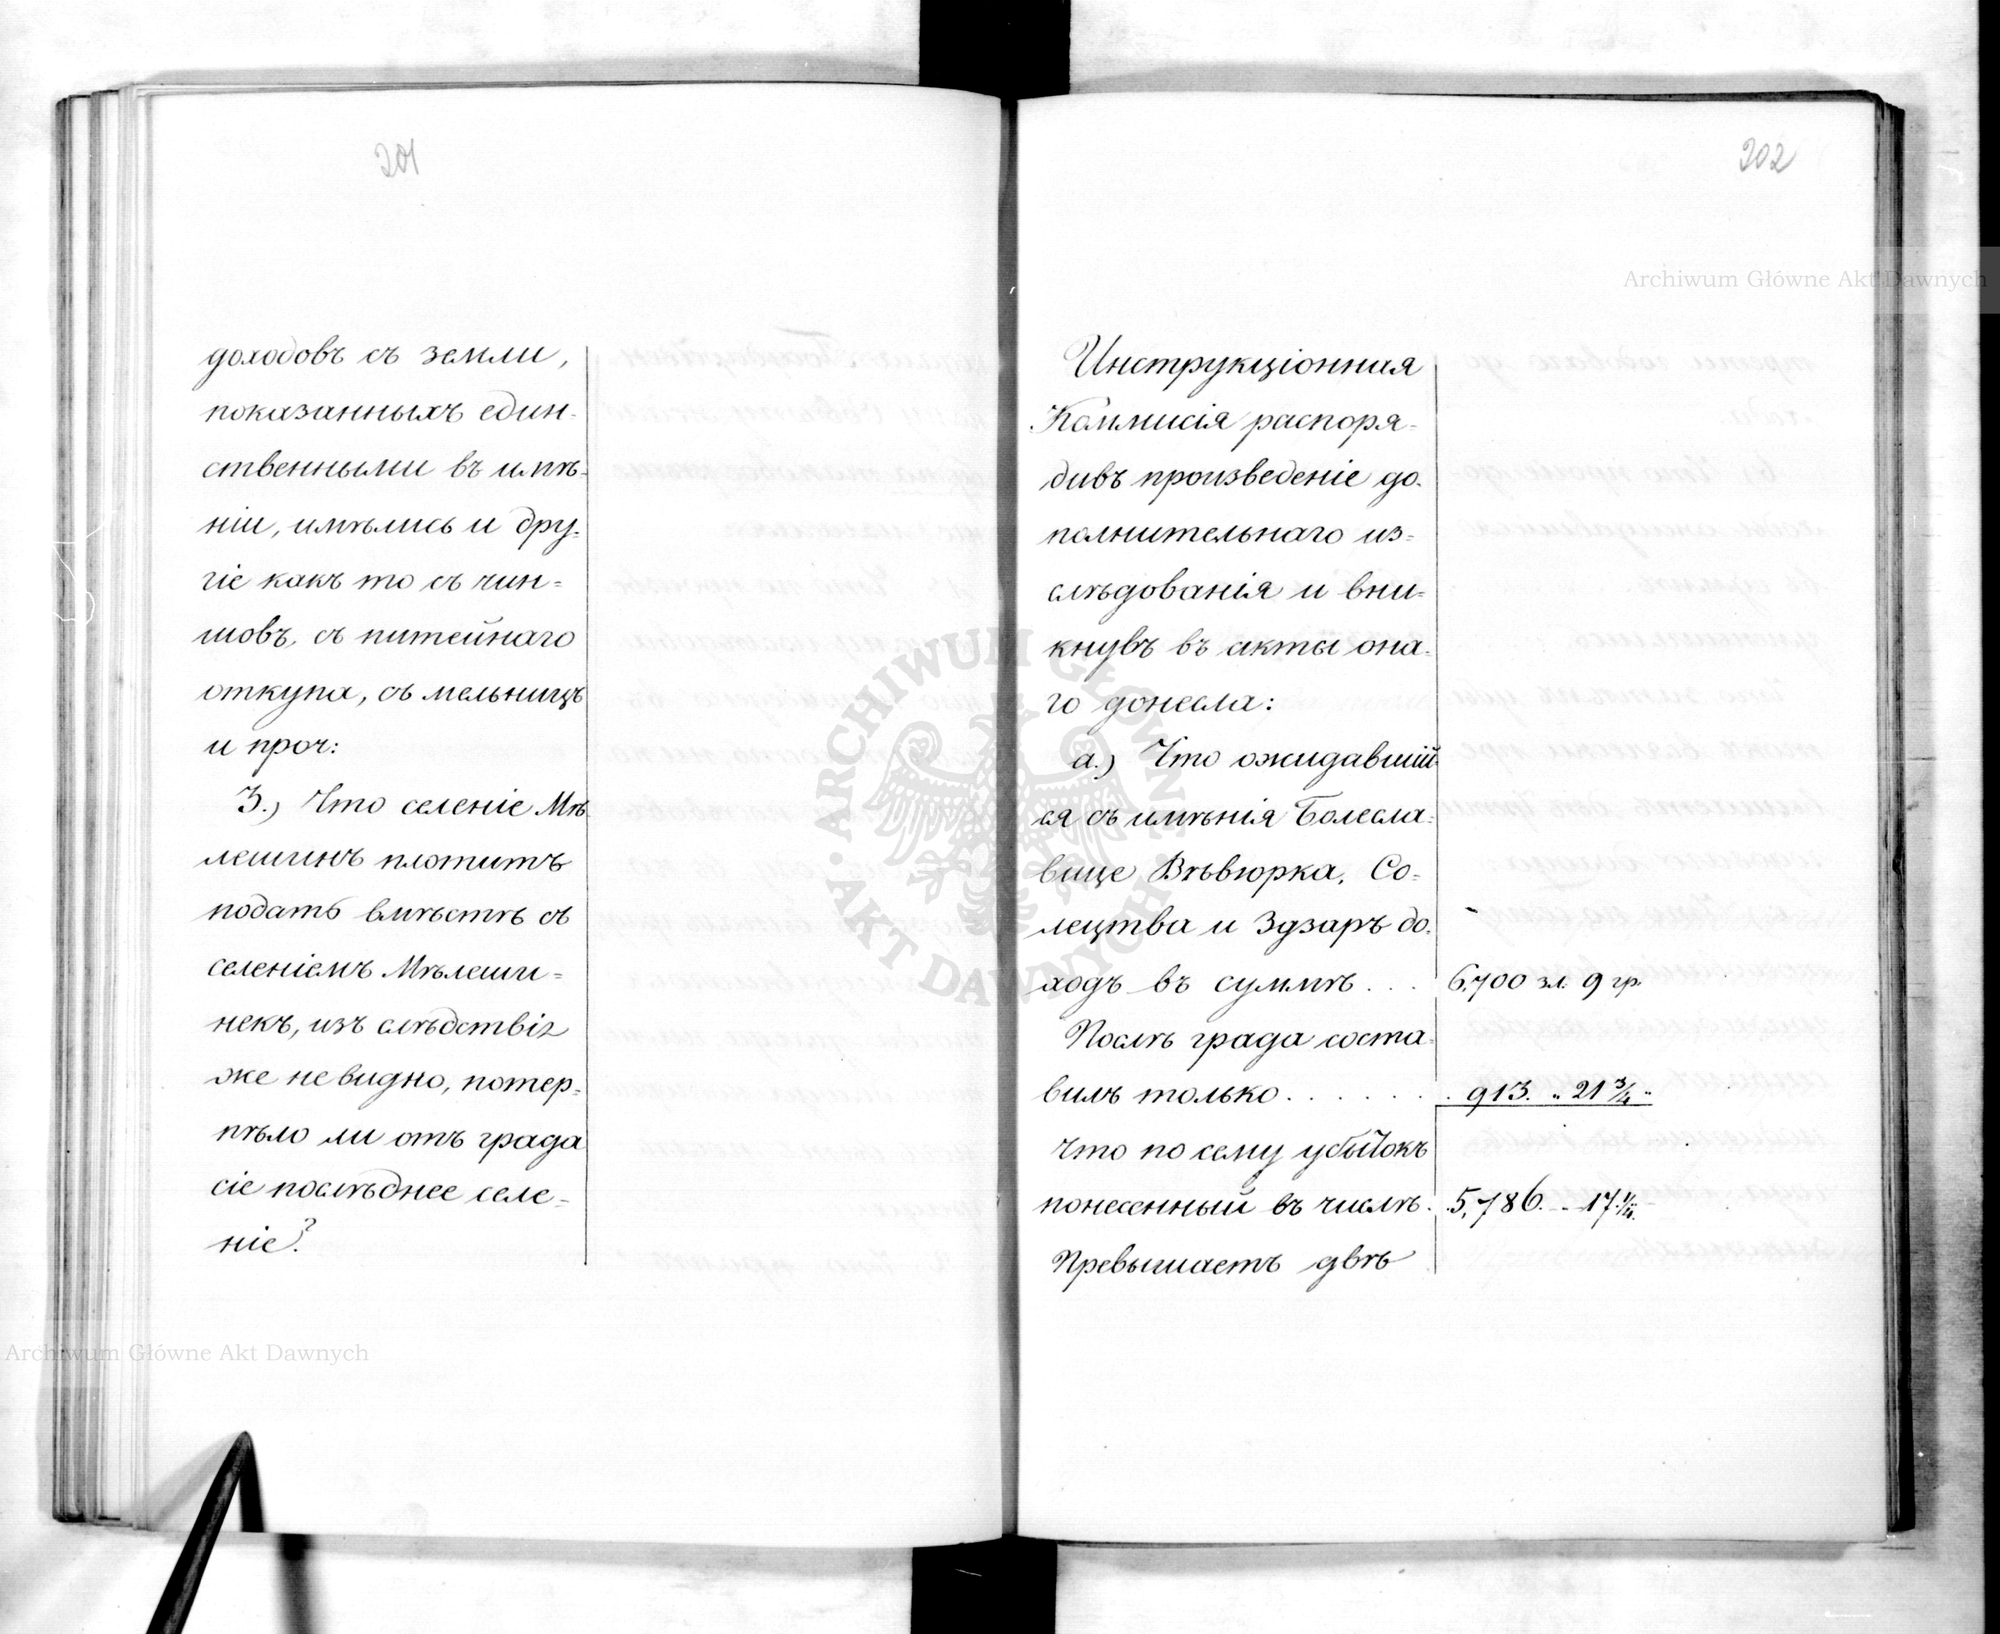 201
доходовъ съ земли,
показанныхъ един-
ственными въ имѣ-
ніи, имѣлись и дру-
гіе какъ то съ чин-
шовъ, съ питейнаго
откупа, съ мельницъ
и проч:
3.) Что селеніе Мѣ-
лешинъ плотитъ
подать вмѣстѣ съ
селеніемъ Мѣлеши-
некъ, изъ слѣдствія
же не видно, потер-
пѣло ли отъ града
сіе послѣднее селе-
ніе?
Archiwum Główne Akt Dawnych
202
Archiwum Główne Akt Dawnych
Инструкціонная
Коммисія распоря-
дивъ произведеніе до-
полнительнаго из-
слѣдованія и вни-
кнувъ въ акты она-
го донесла:
а.) Что ожидавшій-
ся съ имѣнія Болесла-
вице Вѣвюрка, Со-
лецтва и Здзаръ до-
ходъ въ суммѣ . . . 6,700 зл. 9 гр.
Послѣ града соста-
вилъ только . . . . . . . 913. „ 21 3/4 „
Что по сему убытокъ
понесенный въ числѣ . . 5,786. „ 17 1/4.
Превышаетъ двѣ
ARCHIWUM GŁÓWNE
AKT DAWNYCH